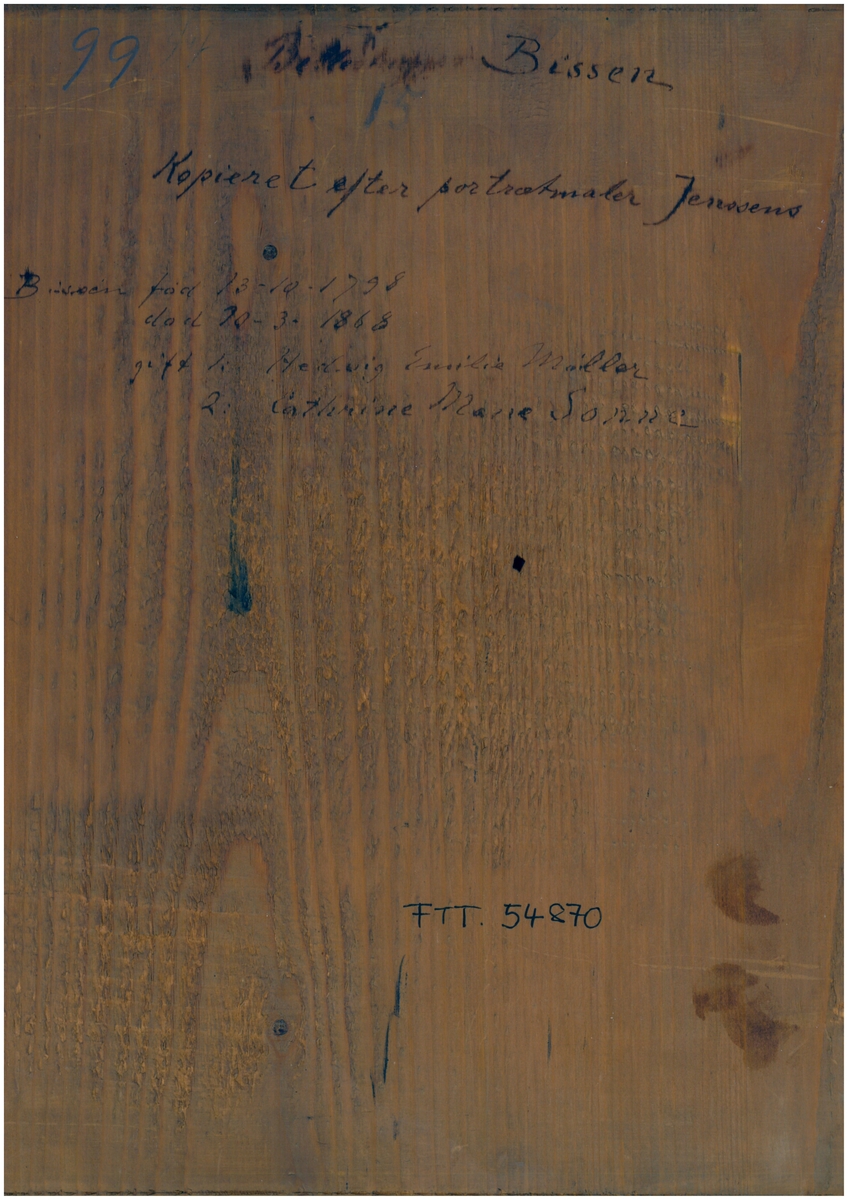 99 Bissen
15
Kopieret efter portrætmaler Jenssens
Bissen fød 13-10-1798
død 10-3-1868
gift 1: Hedvig Emilie Møller
2: Cathrine Marie Sonne
FTT. 54870